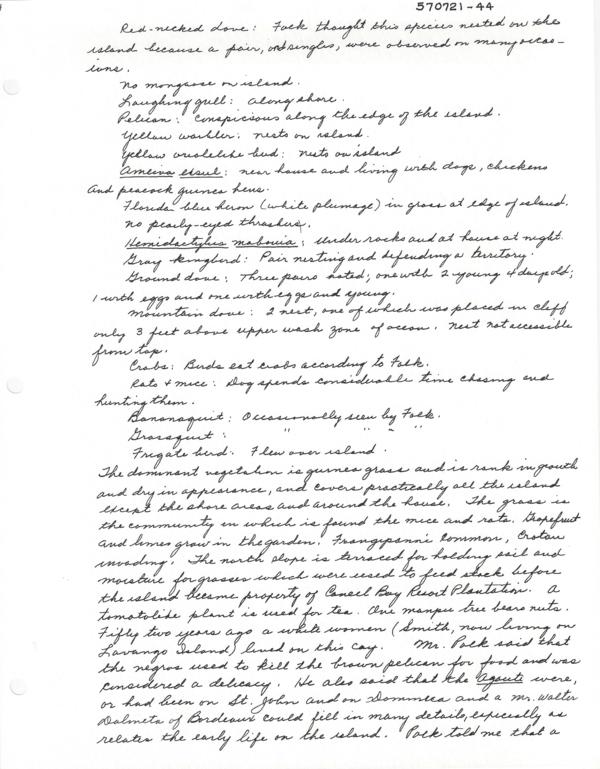 570721-44
Red-necked dove: Folk thought this species nested on the
island because a pair, or singles, were observed on many occas-
ions.
No mongoose on island.
Laughing gull: along shore.
Pelican: conspicious along the edge of the island.
Yellow warbler: nests on island.
Yellow oriolelike bird: nests on island
Ameiva exsul: near house and living with dogs, chickens
and peacock guinea hens.
Florida blue heron (white plumage) in grass at edge of island.
No pearly-eyed thrashers.
Hemidactylus mabouia: under rocks and at house at night.
Gray kingbird: Pair nesting and defending a territory.
Ground dove: Three pairs noted; one with 2 young 4 days old;
1 with eggs and one with eggs and young.
Mountain dove: 2 nest, one of which was placed in cliff
only 3 feet above upper wash zone of ocean. Nest not accessible
from top.
Crabs: Birds eat crabs according to Folk.
Rats & mice: Dog spends considerable time chasing and
hunting them.
Bananaquit: Occasionally seen by Folk.
Grassquit: " " " "
Frigate bird: Flew over island.
The dominant vegetation is guinea grass and is rank in growth
and dry in appearance, and covers practically all the island
except the shore areas and around the house. The grass is
the community in which is found the mice and rats. Grapefruit
and limes grow in the garden. Frangipanni common, Croton
invading. The north slope is terraced for holding soil and
moisture for grasses which were used to feed stock before
the island became property of Caneel Bay Resort Plantation. A
tomatolike plant is used for tea. One manpu tree bears nuts.
Fifty two years ago a white women (Smith, now living on
Lavango Island) lived on this cay. Mr. Folk said that
the negros used to kill the brown pelican for food and was
considered a delicacy. He also said that the Agouti were,
or had been on St. John and on Dominica and a Mr. Walter
Dalmeta of Bordeaux could fill in many details, especially as
relates the early life on the island. Folk told me that a